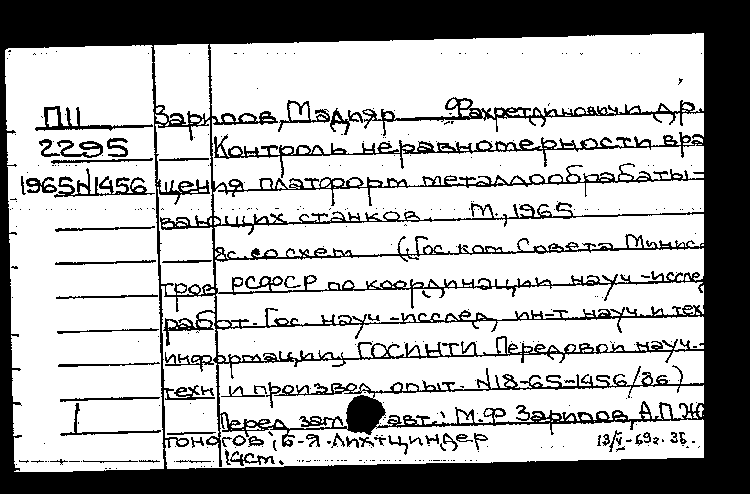 П11 Зарипов, Мадияр Фахретдинович и др.
2295 Контроль неравномерности вра
1965 N1456 щения платформ металлообрабаты-
вающих станков. М., 1965
8с. со схем (Гос. ком. Совета Минис-
тров РСФСР по координации науч-исслед
работ. Гос. науч-исслед. ин-т науч. и техн
информации ГОСИНТИ. Передовой науч.-
техн и производ. опыт. N18-65-1456/86)
1 Перед загл авт.: М.Ф Зарипов, А.П. Жи
тоногов, Б.Я. Лихтциндер 13/ -69г.
14см.